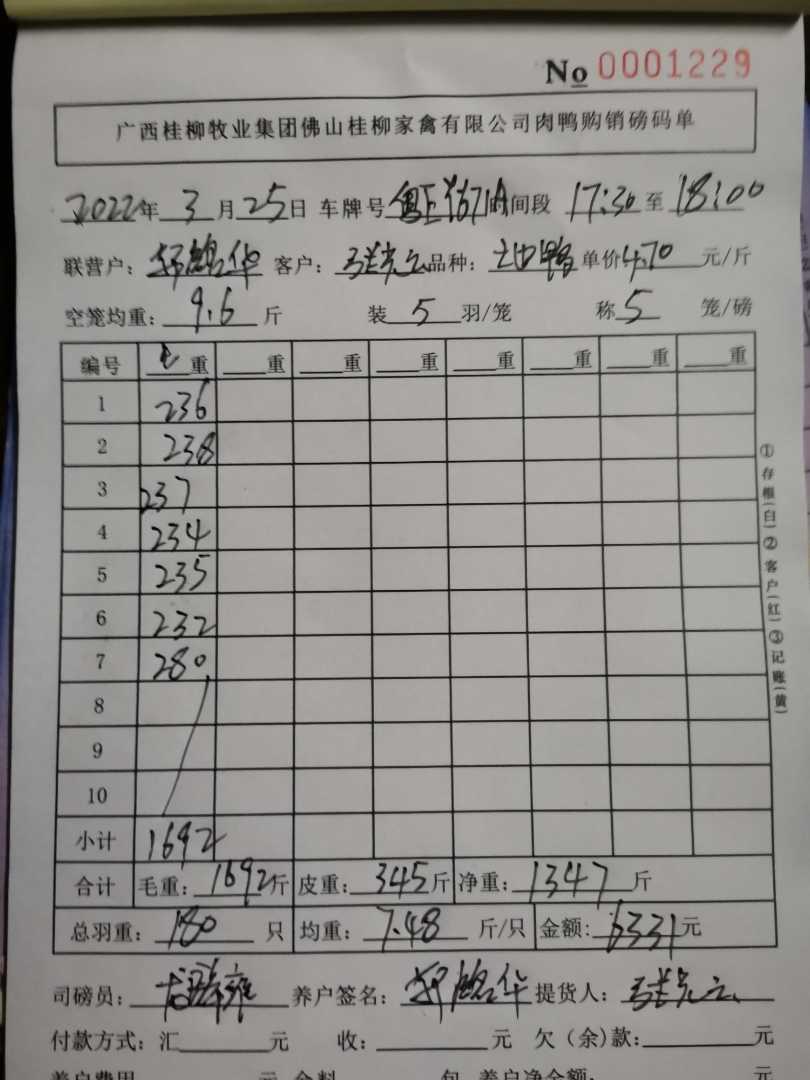 No 0001229
广西桂柳牧业集团佛山桂柳家禽有限公司肉鸭购销磅码单
2022年 3 月 25 日 车牌号 间段 17:30 至 18:00
联营户: 华 客户: 品种: 鸭 单价 4.70 元/斤
空笼均重: 9.6 斤 装 5 羽/笼 称 5 笼/磅
编号 毛重 重 重 重 重 重 重 重
1 236
2 238
3 237
4 234
5 235
6 232
7 280
8
9
10
小计 1692
合计 毛重: 1692 斤 皮重: 345 斤 净重: 1347 斤
总羽重: 180 只 均重: 7.48 斤/只 金额: 6331 元
司磅员: 养户签名: 华 提货人:
付款方式: 汇 元 收: 元 欠(余)款: 元
养户费用 元 含料 包 养户净金额: 元
①存根(白)②客户(红)③记账(黄)